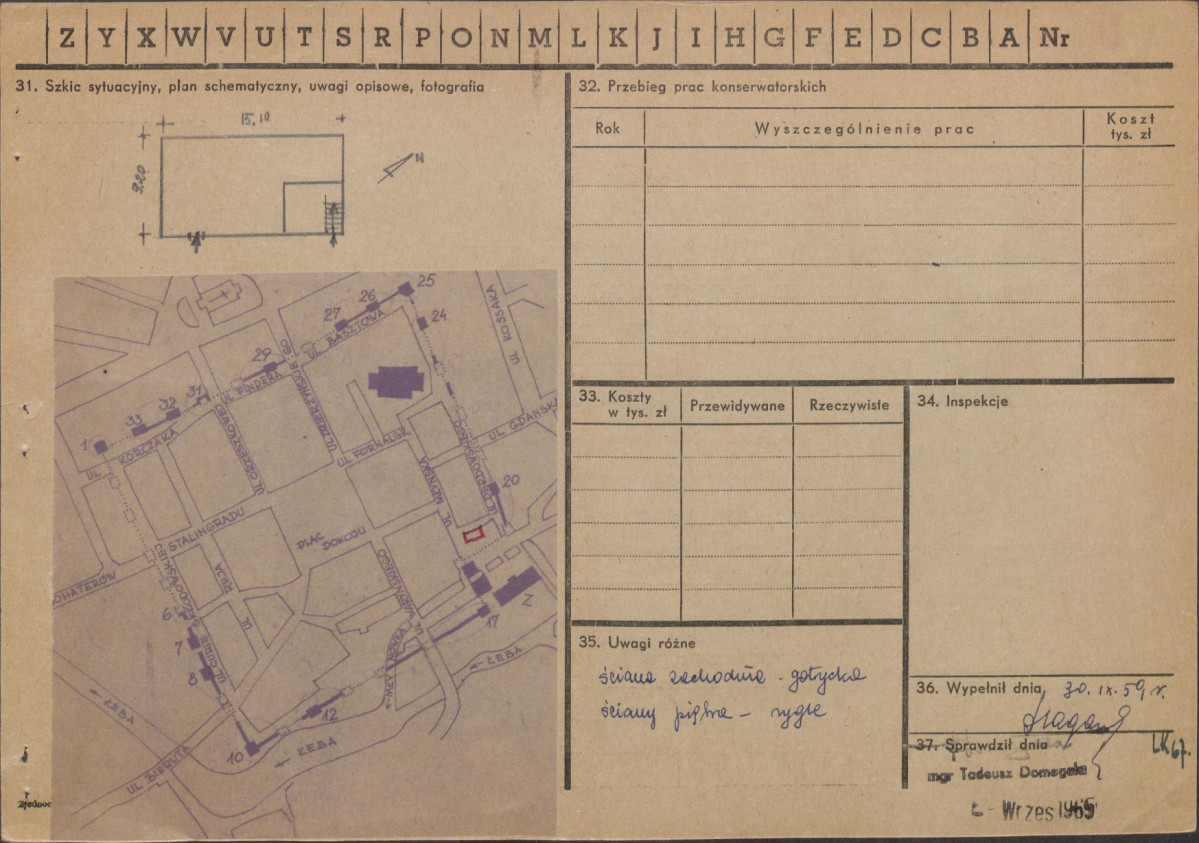 Z Y X W V U T S R P O N M L K J I H G F E D C B A Nr
31. Szkic sytuacyjny, plan schematyczny, uwagi opisowe, fotografia
15,10
9,20
N
25
26
27
24
29
31
32
33
1
20
6
7
8
10
12
17
Z
UL. KOSSAKA
UL. BASZTOWA
UL. FINDERA
UL. KORCZAKA
UL. ORZESZKOWEJ
UL. DZIERŻYŃSKIE
UL. GDAŃSKA
UL. MŁYŃSKA
STALINGRADU
PLAC
POKOJU
REJA
UL.
UL. BIERUTA
ŁEBA
ŁEBA
ŁEBA
32. Przebieg prac konserwatorskich
Rok
Wyszczególnienie prac
Koszt
tys. zł
33. Koszty
w tys. zł
Przewidywane
Rzeczywiste
34. Inspekcje
35. Uwagi różne
ściana zachodnia - gotycka
ściany piętra - rygle
36. Wypełnił dnia 30. IX. 59 r.
37. Sprawdził dnia
LK 67.
mgr Tadeusz Domagała
Wrzes 1965
Zjednoc